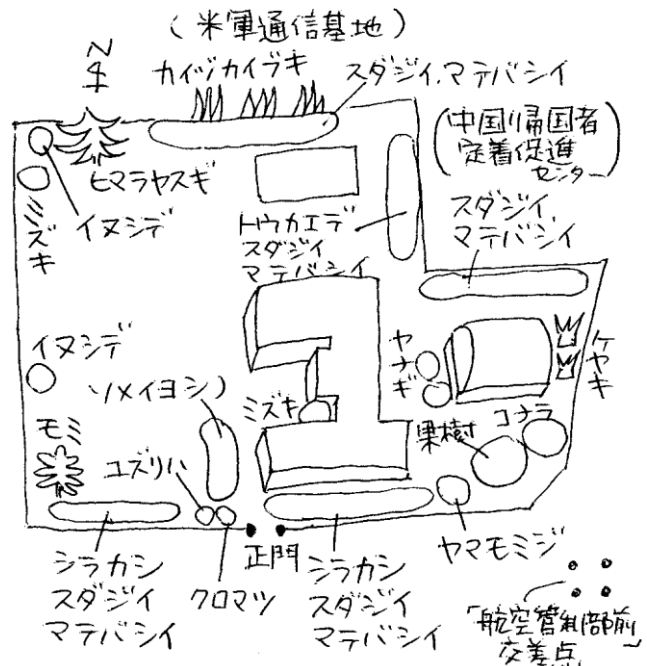 (米軍通信基地)
N
カイヅカイブキ
スダジイ、マテバシイ
(中国帰国者
定着促進
センター)
ヒマラヤスギ
イヌシデ
ミズキ
トウカエデ
スダジイ
マテバシイ
スダジイ
マテバシイ
イヌシデ
ソメイヨシノ
ヤナギ
ケヤキ
ミズキ
コナラ
果樹
モミ
ユズリハ
ヤマモミジ
正門
シラカシ
スダジイ
マテバシイ
クロマツ
シラカシ
スダジイ
マテバシイ
「航空管制部前」
交差点